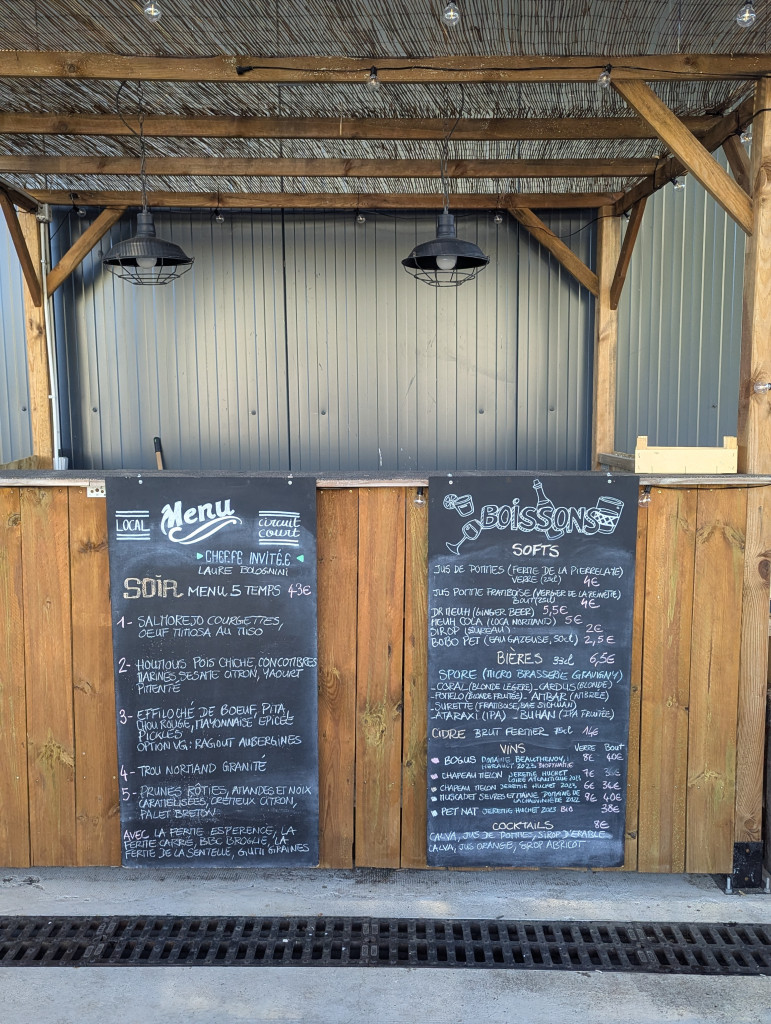 LOCAL
Menu
circuit
court
CHEFFE INVITÉ.E
LAURE BOLOGNINI
SOIR MENU 5 TEMPS 43€
1- SALMOREJO COURGETTES,
OEUF MIMOSA AU MISO
2- HOUMOUS POIS CHICHE, CONCOMBRES
MARINÉS, SESAME CITRON, YAOURT
PIMENTÉ
3- EFFILOCHÉ DE BOEUF, PITA,
CHOU ROUGE, MAYONNAISE, EPICES
PICKLES
OPTION VG: RAGOUT AUBERGINES
4- TROU NORMAND GRANITÉ
5- PRUNES RÔTIES, AMANDES ET NOIX
CARAMELISÉES, CRÉMEUX CITRON,
PALET BRETON
AVEC LA FERME ESPERENCE, LA
FERME CARRÉ, BBC BROGLIE, LA
FERME DE LA SENTELLE, GUMI GRAINES
BOISSONS
SOFTS
JUS DE POMMES (FERME DE LA PIERRELAYE)
VERRE (25cl) 4€
JUS POMME FRAMBOISE (VERGER DE LA REINETTE)
BOUT (25cl) 4€
DR MEUH (GINGER BEER) 5,5€
MEUH COLA (COCA NORMAND) 5€
SIROP (SUREAU) 2€
BOBO PET (EAU GAZEUSE, 50CL) 2,5€
BIÈRES 33cl 6,5€
SPORE (MICRO BRASSERIE GRAVIGNY)
- CORAL (BLONDE LÉGÈRE) - CARDUS (BLONDE)
- POMELO (BLONDE FRUITÉE) - AMBAR (AMBRÉE)
- SURETTE (FRAMBOISE, BAIE SICHUAN)
- ATARAXI (IPA) - BUHAN (IPA FRUITÉE)
CIDRE BRUT FERMIER 75cl 14€
VINS VERRE BOUT
BOGUS DOMAINE BEAUTHENOV, HERAULT 2023 BIODYNAMIE 8€ 40€
CHAPEAU MELON JEREMIE HUCHET LOIRE ATLANTIQUE 2023 7€ 36€
CHAPEAU MELON JEREMIE HUCHET 2023 6€ 34€
MUSCADET SEVRES ET MAINE DOMAINE DE LA CHAUVINIÈRE 2022 8€ 40€
PET NAT JEREMIE HUCHET 2023 BIO 38€
COCKTAILS 8€
CALVA, JUS DE POMMES, SIROP D'ERABLE
CALVA, JUS ORANGE, SIROP ABRICOT